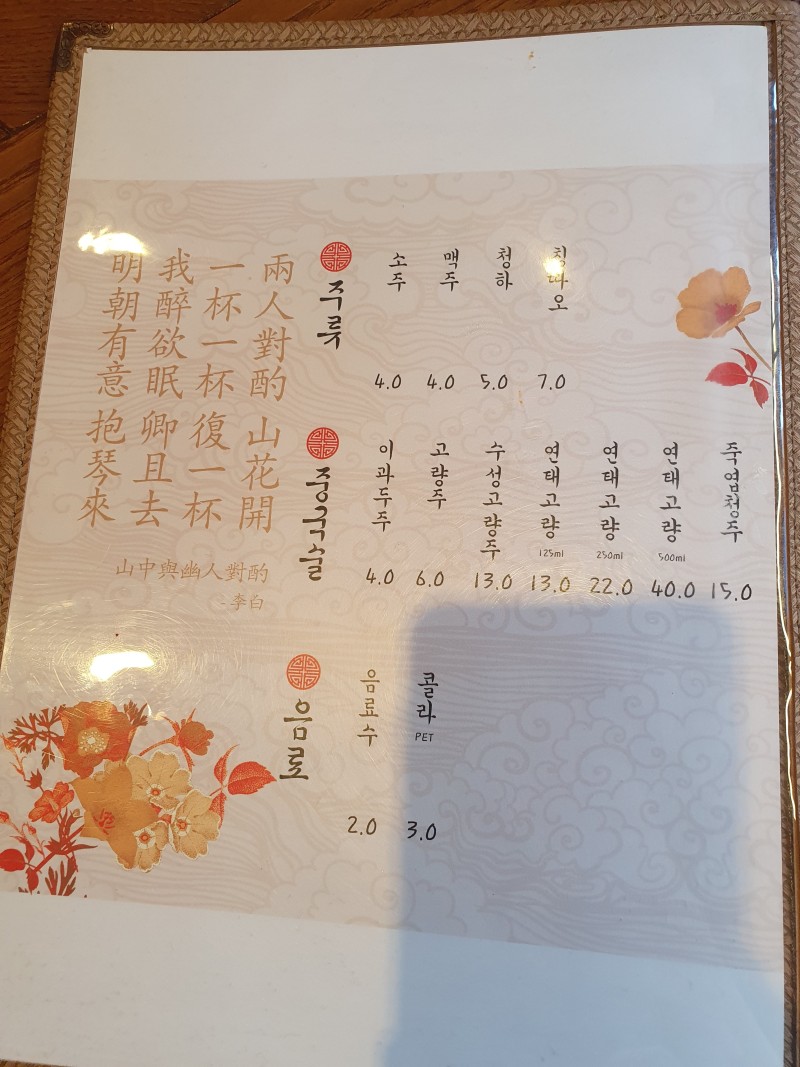 兩人對酌山花開
一杯一杯復一杯
我醉欲眠卿且去
明朝有意抱琴來
山中與幽人對酌
-李白
주류
소주 4.0
맥주 4.0
청하 5.0
칭따오 7.0
중국술
이과두주 4.0
고량주 6.0
수성고량주 13.0
연태고량 125ml 13.0
연태고량 250ml 22.0
연태고량 500ml 40.0
죽엽청주 15.0
음료
음료수 2.0
콜라 PET 3.0